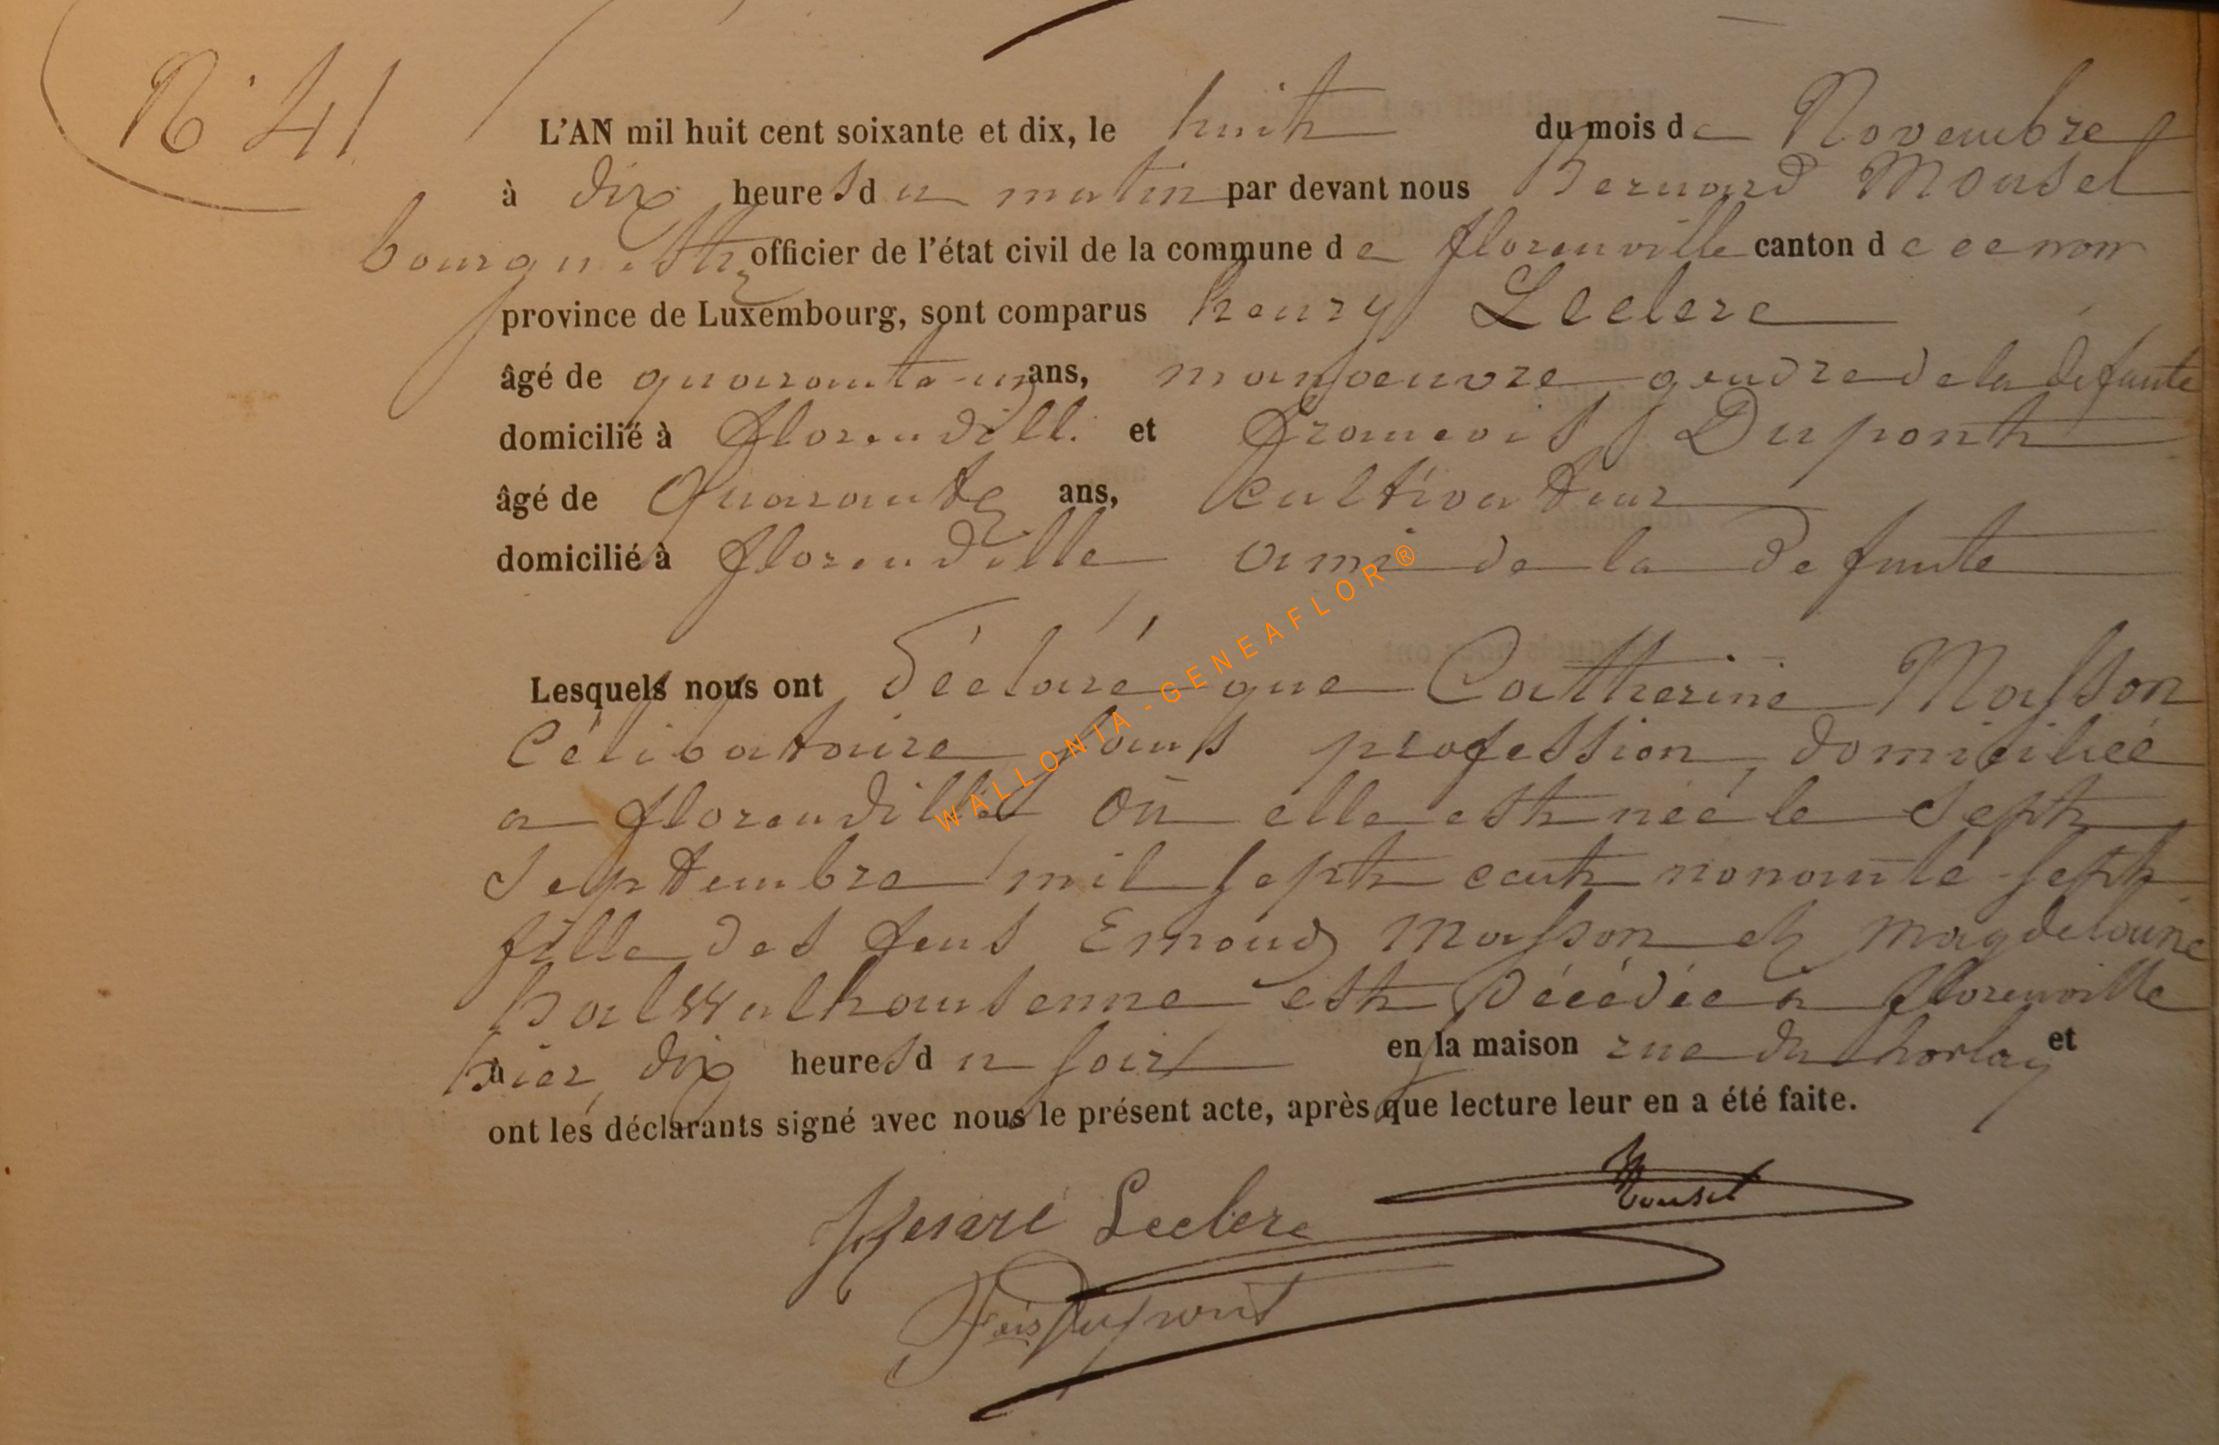 N° 41
L'AN mil huit cent soixante et dix, le huit du mois de Novembre
à dix heures du matin par devant nous Bernard Mousel
bourgmestre officier de l'état civil de la commune de florenville canton de ce nom
province de Luxembourg, sont comparus henry Leclerc
âgé de quarante-un ans, manoeuvre gendre de la défunte
domicilié à florenville et francois Dupont
âgé de Quarante ans, Cultivateur
domicilié à florenville ami de la defunte
Lesquels nous ont déclaré que Catherine Masson
Célibataire sans profession, domiciliée
a florenville où elle est née le sept
septembre mil sept cent nonante-sept
fille des feus Ernoud Masson et Magdelaine
est décédée a florenville
hier, dix heures du soir en sa maison rue du et
ont les déclarants signé avec nous le présent acte, après que lecture leur en a été faite.
Mousel
Henri Leclerc
Fois Dupont
WALLONIA-GENEAFLOR®